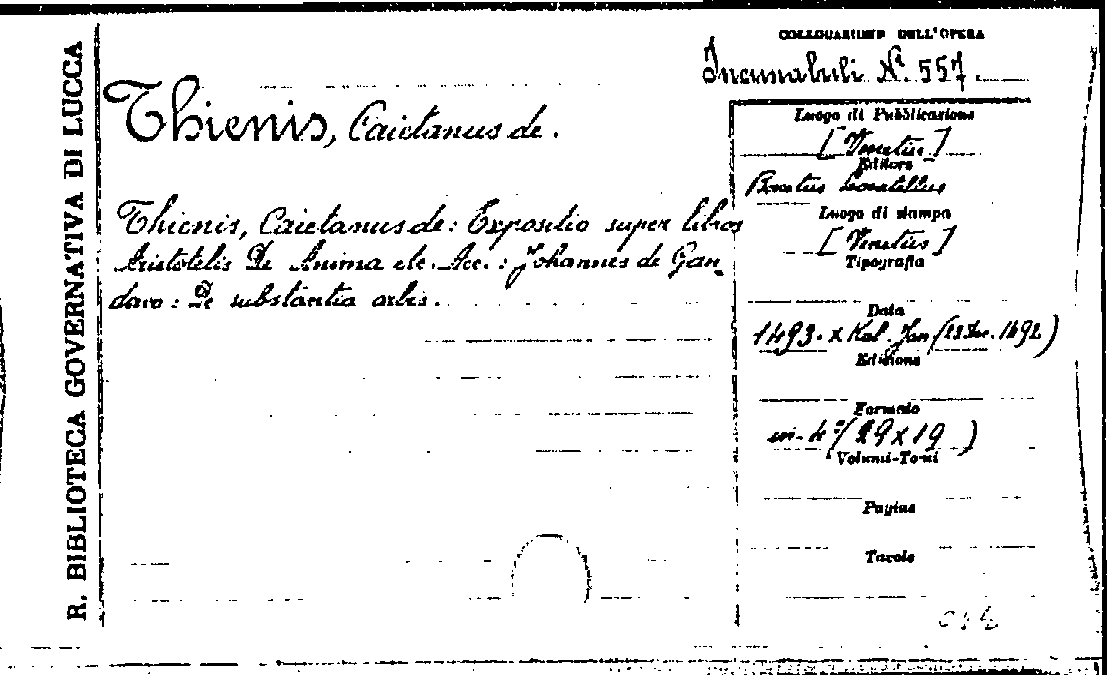 R. BIBLIOTECA GOVERNATIVA DI LUCCA
COLLOCAZIONE DELL'OPERA
Incunabuli N.º 557
Thienis, Caietanus de.
Thienis, Caietanus de: Expositio super libros
Aristotelis De Anima etc. Acc.: Johannes de Gan-
davo: De substantia orbis.
Luogo di Pubblicazione
[Venetiis]
Editore
Bonetus Locatellus
Luogo di stampa
[Venetiis]
Tipografia
Data
1493. X Kal. Jan (23 Dec. 1492)
Edizione
Formato
in-4º (29 x 19)
Volumi-Tomi
Pagine
Tavole